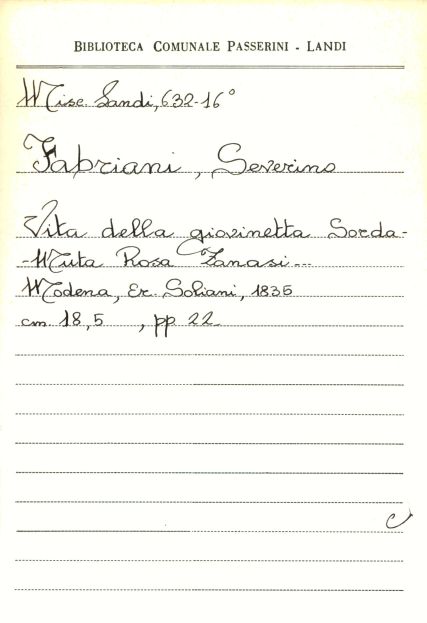 BIBLIOTECA COMUNALE PASSERINI - LANDI
Misc. Landi, 632-16°
Fabriani, Severino
Vita della giovinetta Sorda-
-Muta Rosa Zanasi...
Modena, Er. Soliani, 1835
cm. 18,5 , pp 22